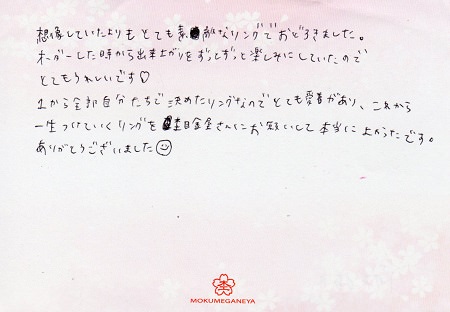 想像していたよりもとても素敵なリングでおどろきました。
オーダーした時から出来上がりをずっとずっと楽しみにしていたので
とてもうれしいです♡
1から全部自分たちで決めたリングなのでとても愛着があり、これから
一生つけていくリングを杢目金屋さんにお願いして本当によかったです。
ありがとうございました☺
MOKUMEGANEYA